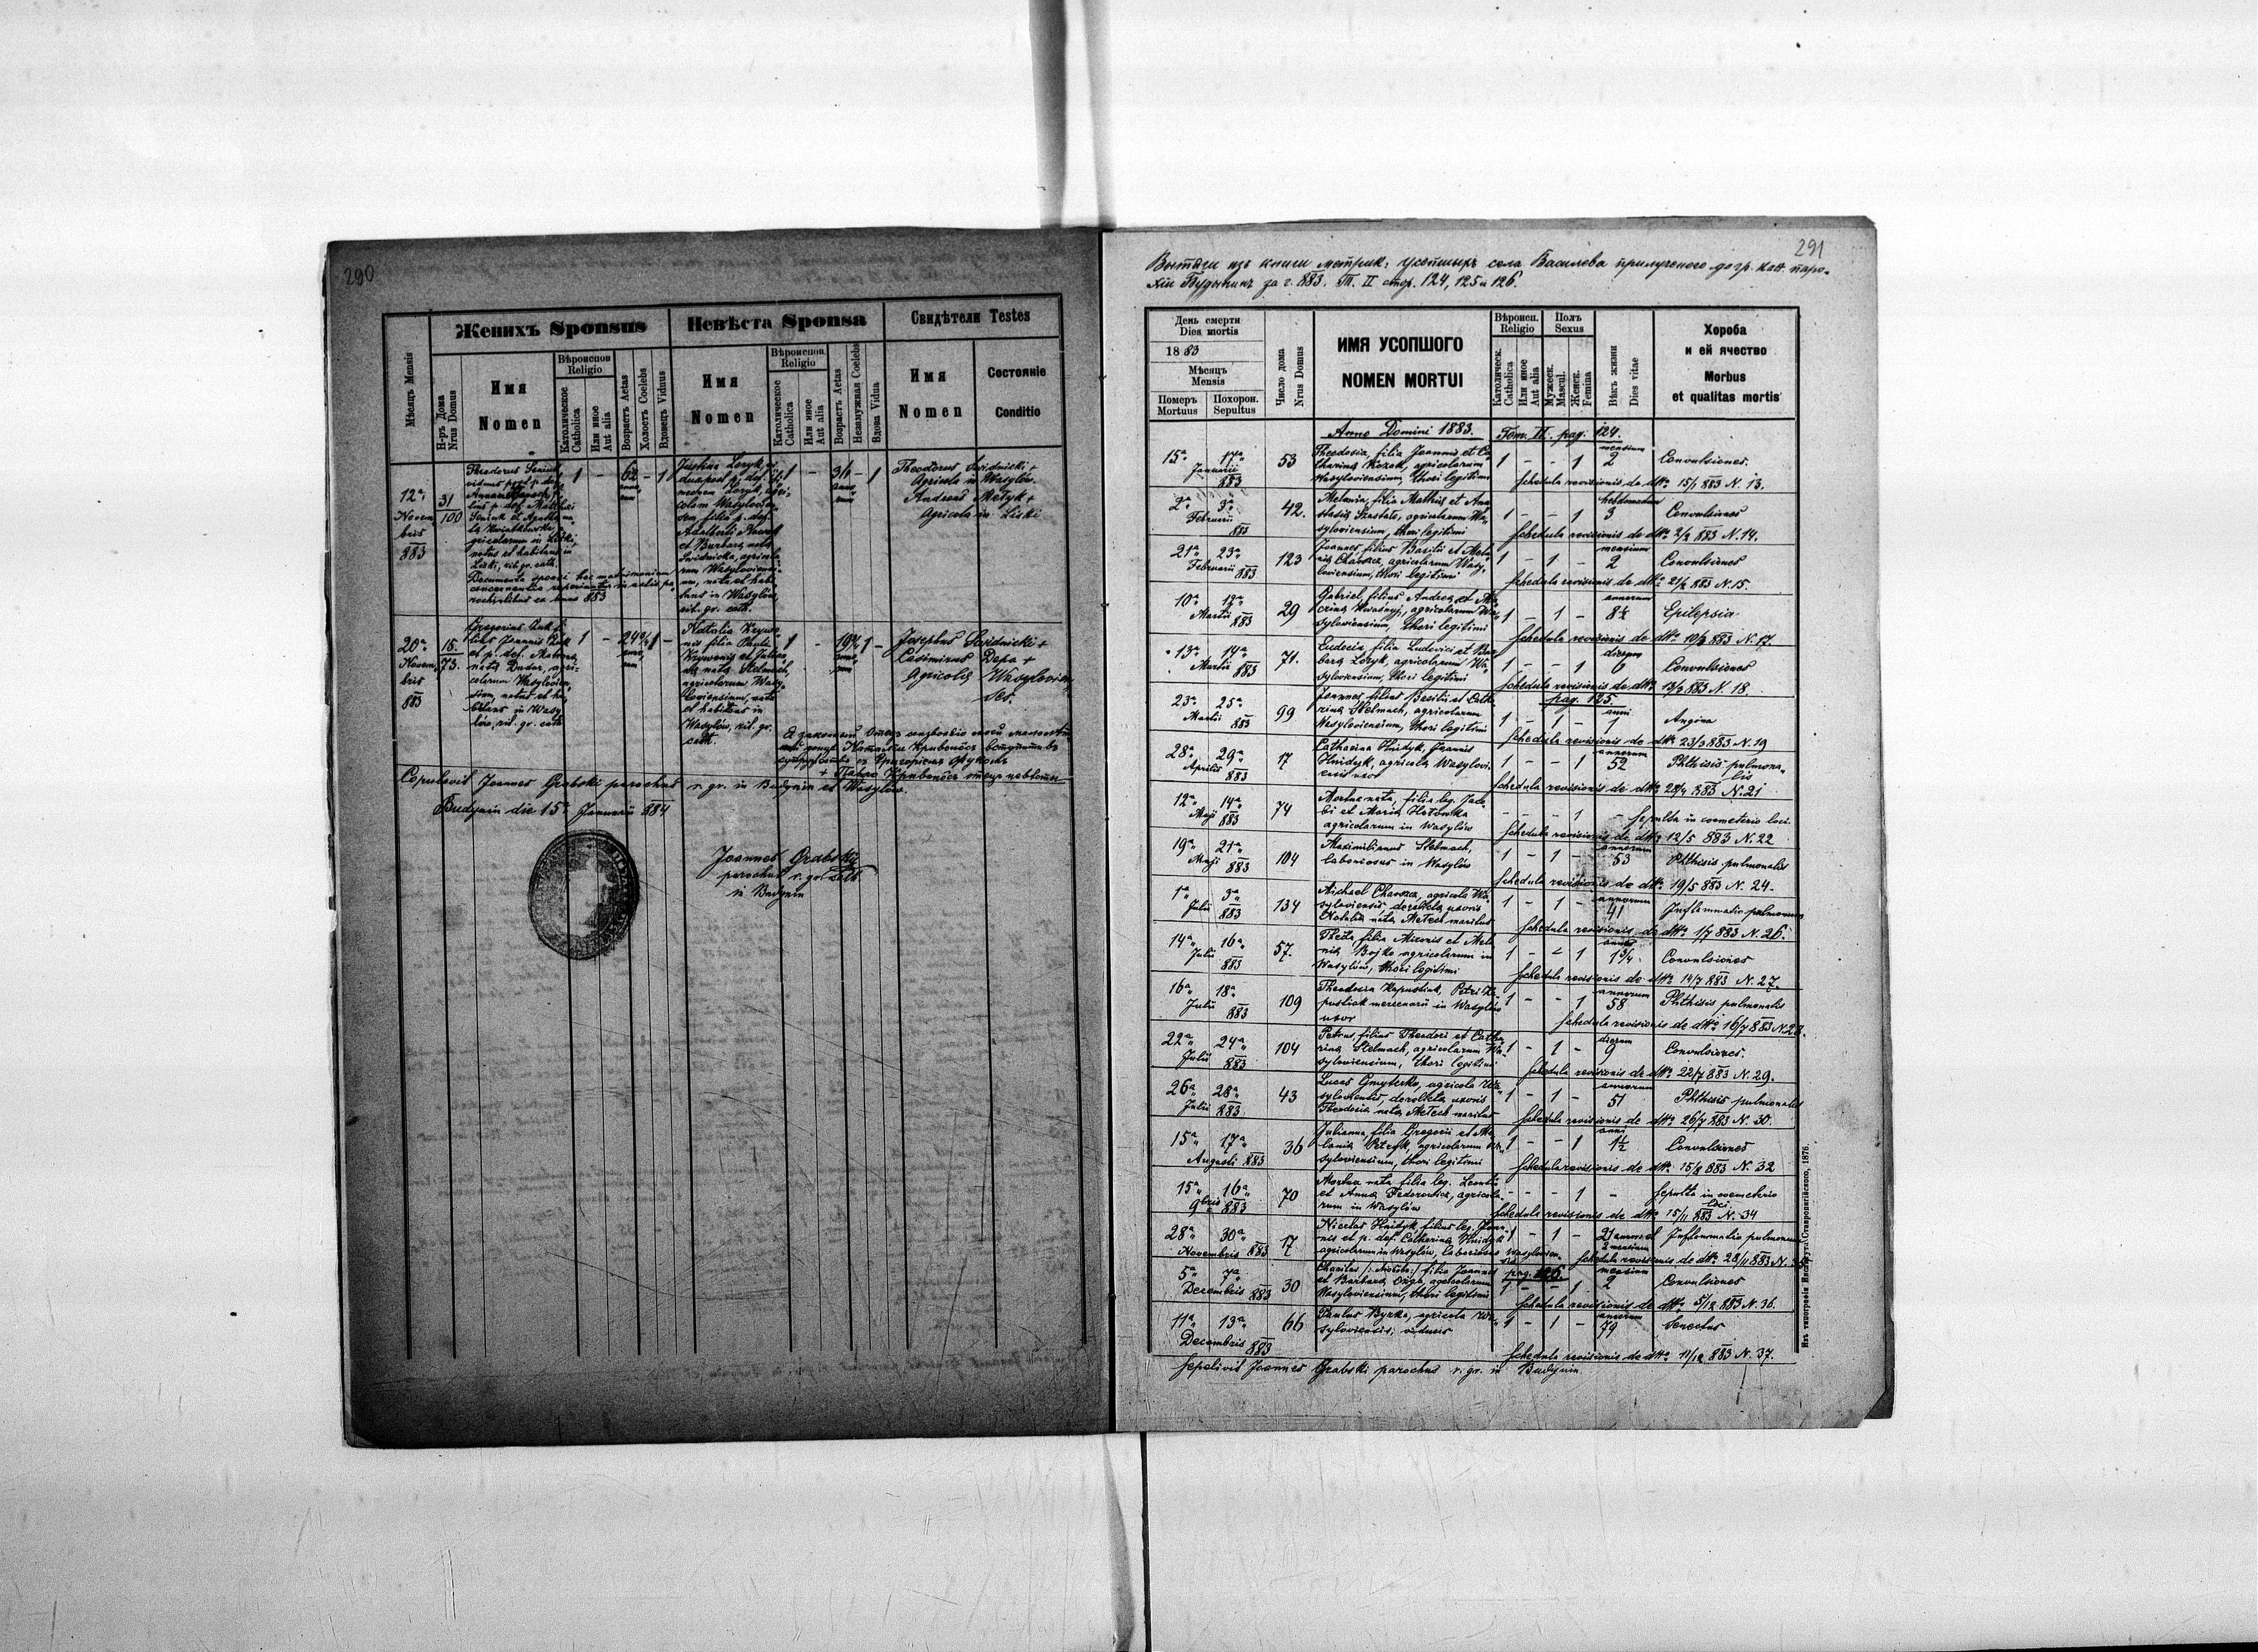 290
Женихъ Sponsus
Невѣста Sponsa
Свидѣтели Testes
Мѣсяцъ Mensis
Н-ръ Дома
Nrus Domus
Имя
Nomen
Вѣроиспов
Religio
Католическое
Catholica
Или иное
Aut alia
Возрастъ Aetas
Холостъ Coelebs
Вдовецъ Viduus
Имя
Nomen
Вѣроиспов.
Religio
Католическое
Catholica
Или иное
Aut alia
Возрастъ Aetas
Незамужная Coelebs
Вдова Vidua
Имя
Nomen
Состояніе
Conditio
12ᵃ
Novem
bris
883
31
100
Theodorus Seniuk
viduus post p. def.
lius p. def. Matthaei
Seniuk et Agatha na
gricolarum in Liski
natus et habitans in
Liski, rit. gr. cath.
Documenta sponsi hoc matrimonium
concernentia reperiuntur in actis pa
rochialibus ex anno 883
1 - 62 - 1
Justina Lozyk vi
dua post p. def. Si
meonem Lozyk, agri
colam Wasylovien
sem filia p. def.
Adalberti
et Barbara nata
Swidnicka, agricola
rum Wasyloviensi
um, nata et habi
tans in Wasylów,
rit. gr. cath.
1 - 31 - 1
Theodorus Swidnicki +
Agricola in Wasylów.
Andreas Metyk +
Agricola in Liski
20ᵃ
Novem
bris
883
15.
73.
Gregorius Żuk fi
lius Joannis Żuk
et p. def. Matrona
nata Dudar, agri
colarum Wasylovien
sium, natus et ha
bitans in Wasy
lów, rit. gr. cath.
1 - 24 1 -
Natalia Krywo
nis filia Pauli
Krywonis et Juliana
de nata Stelmach,
agricolarum Wasy
loviensium, nata
et habitans in
Wasylów, rit. gr.
cath.
1 - 19 1 -
Josephus Swidnicki +
Casimirus Depa +
Agricola Wasylovien
ses.
+ Павло Кривонôсъ отець невѣсты
Copulavit Joannes Grabski parochus r. gr. in Budynin et Wasylów.
Budynin die 15ᵃ Januarii 884
Joannes Grabski
parochus r. gr. cath.
in Budynin
291
Вытяги изъ книги метрик: усопшыхъ села Василева прилученого до гр. кат. паро-
хіи Будынинъ за г. 883. Т. II стор. 124, 125 и 126.
День смерти
Dies mortis
1883
Мѣсяцъ
Mensis
Померъ
Mortuus
Похорон.
Sepultus
Число дома
Nrus Domus
ИМЯ УСОПШОГО
NOMEN MORTUI
Вѣроисп.
Religio
Католическ.
Catholica
Или иное
Aut alia
Полъ
Sexus
Мужеск.
Mascul.
Женск.
Femina
Вѣкъ жизни
Dies vitae
Хороба
и ей ячество
Morbus
et qualitas mortis
Anno Domini 1883. Tom. II. pag. 124.
15ᵃ 17ᵃ
Januarii
883
53
Theodosia, filia Joannis et Ca
tharina Kozak, agricolarum
Wasyloviensium, thori legitimi
1 - - 1
mensium
2
Convulsiones.
Schedula revisionis de dtto 15/1 883 N. 13.
2ᵃ 3ᵃ
Februarii
883
42.
Melania, filia Mathiae et Ana
stasia Szastało, agricolarum Wa
syloviensium, thori legitimi
1 - - 1
hebdomadum
3
Convulsiones
Schedula revisionis de dtto 2/2 883 N. 14.
21ᵃ 23ᵃ
Februarii
883
123
Joannes, filius Basilii et Mela
nia Chawrza, agricolarum Wasy
loviensium, thori legitimi
1 - 1 -
mensium
2
Convulsiones
Schedula revisionis de dtto 21/2 883 N. 15.
10ᵃ 12ᵃ
Martii 883
29
Gabriel, filius Andrea et Ma
crina Kwasnyj, agricolarum Wa
syloviensium, thori legitimi
1 - 1 -
annorum
8½
Epilepsia
Schedula revisionis de dtto 10/3 883 N. 17.
13ᵃ 14ᵃ
Martii 883
71.
Eudocia, filia Ludovici et Bar
bara Lozyk, agricolarum Wa
syloviensium, thori legitimi
1 - - 1
dierum
6
Convulsiones
Schedula revisionis de dtto 13/3 883 N. 18.
pag. 125.
23ᵃ 25ᵃ
Martii 883
99
Joannes, filius Basilii et Catha
rina Stelmach, agricolarum
Wasyloviensium, thori legitimi
1 - 1 -
anni
1
Angina
Schedula revisionis de dtto 23/3 883 N. 19
28ᵃ 29ᵃ
Aprilis 883
17
Catharina Hnidyk, Joannis
Hnidyk, agricola Wasylovi
ensis uxor
1 - - 1
annorum
52
Phthisis pulmona
lis
Schedula revisionis de dtto 28/4 883 N. 21
12ᵃ 14ᵃ
Maji 883
74
Mortue nata, filia leg. Jaco
bi et Maria Hołowka
agricolarum in Wasylów
- - - 1 -
Sepulta in coemeterio loci.
Schedula revisionis de dtto 12/5 883 N. 22
19ᵃ 21ᵃ
Maji 883
104
Maximilianus Stelmach,
laboriosus in Wasylów
1 - 1 -
annorum
53
Phthisis pulmonalis
Schedula revisionis de dtto 19/5 883 N. 24.
1ᵃ 3ᵃ
Julii 883
134
Michael Chawrza, agricola Wa
syloviensis derelicta uxoris
Natalia nata Metech maritus
1 - 1 -
annorum
41
Inflammatio pulmonum
Schedula revisionis de dtto 1/7 883 N. 26.
14ᵃ 16ᵃ
Julii 883
57.
Thecla, filia Mironis et Mela
nia Bojko agricolarum in
Wasylów, thori legitimi
1 - - 1
1¾
Convulsiones
Schedula revisionis de dtto 14/7 883 N. 27.
16ᵃ 18ᵃ
Julii 883
109
Theodosia Kapustiak, Petri Ka
pustiak mercenarii in Wasylów
uxor
1 - - 1
annorum
58
Phthisis pulmonalis
Schedula revisionis de dtto 16/7 883 N. 28.
22ᵃ 24ᵃ
Julii 883
104
Petrus, filius Theodori et Catha
rina Stelmach, agricolarum Wa
syloviensium, thori legitimi
1 - 1 -
dierum
9
Convulsiones.
Schedula revisionis de dtto 22/7 883 N. 29.
26ᵃ 28ᵃ
Julii 883.
43
Lucas Gmyterko, agricola Wa
syloviensis, derelicta uxoris
Theodosia nata Metech maritus
1 - 1 -
annorum
51
Phthisis pulmonalis
Schedula revisionis de dtto 26/7 883 N. 30.
15ᵃ 17ᵃ
Augusti 883
36
Julianna, filia Gregorii et Me
lania Petryk, agricolarum Wa
syloviensium, thori legitimi
1 - - 1
anni
1½
Convulsiones
Schedula revisionis de dtto 15/8 883 N. 32
15ᵃ 16ᵃ
9bris 883
70
Mortua nata filia leg. Leontii
et Anna Fedorowicz, agricola
rum in Wasylów
- - - 1 -
Sepulta in coemeterio
loci
Schedula revisionis de dtto 15/11 883 N. 34
28ᵃ 30ᵃ
Novembris 883
17
Nicetas Hnidyk, filius leg. Joan
nis et p. def. Catharina Hnidyk
agricolarum in Wasylów, laboriosus Wasylovien
sis
1 - 1 -
21 annorum et
2 mensium
Inflammatio pulmonum
Schedula revisionis de dtto 28/11 883 N. 35
pag. 126.
5ᵃ 7ᵃ
Decembris 883
30
filia Joannis
et Barbara Onga, agricolarum
Wasyloviensium, thori legitimi
1 - - 1
mensium
2
Convulsiones
Schedula revisionis de dtto 5/12 883 N. 36.
11ᵃ 13ᵃ
Decembris 883
66
Paulus Byrka, agricola Wa
syloviensis, viduus
1 - 1 -
annorum
79
Senectus
Schedula revisionis de dtto 11/12 883 N. 37.
Sepelivit Joannes Grabski parochus r. gr. in Budynin
Изъ типографіи Института Ставропигійского, 1876.